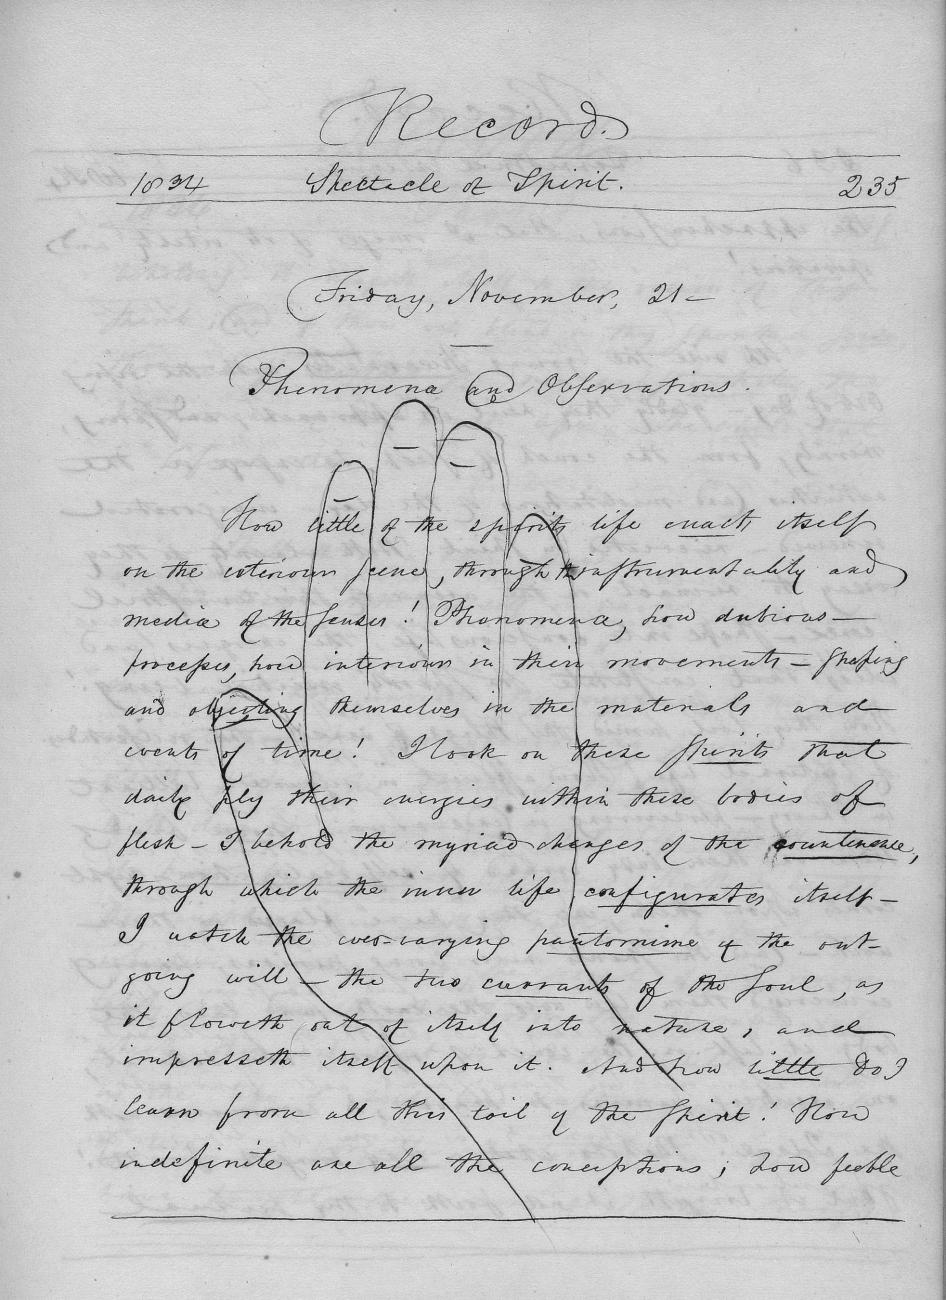 Record.
1834 Spectacle of Spirit. 235
Friday, November, 21 —
Phenomena and Observations.
How little of the spirits life enacts itself
on the exterious scene, through the instrumentality and
media of the senses! Phenomena, how dubious —
processes, how interious in their movements — shaping
and objecting themselves in the materials and
events of time! I look on these spirits that
daily ply their energies within these bodies of
flesh — I behold the myriad changes of the countenance,
through which the inner life configurates itself —
I watch the ever-varying pantomime of the out-
going will — the two currants of the Soul, as
it floweth out of itself into nature, and
impresseth itself upon it. And how little do I
learn from all this toil of the Spirit! How
indefinite are all the conceptions; how feeble